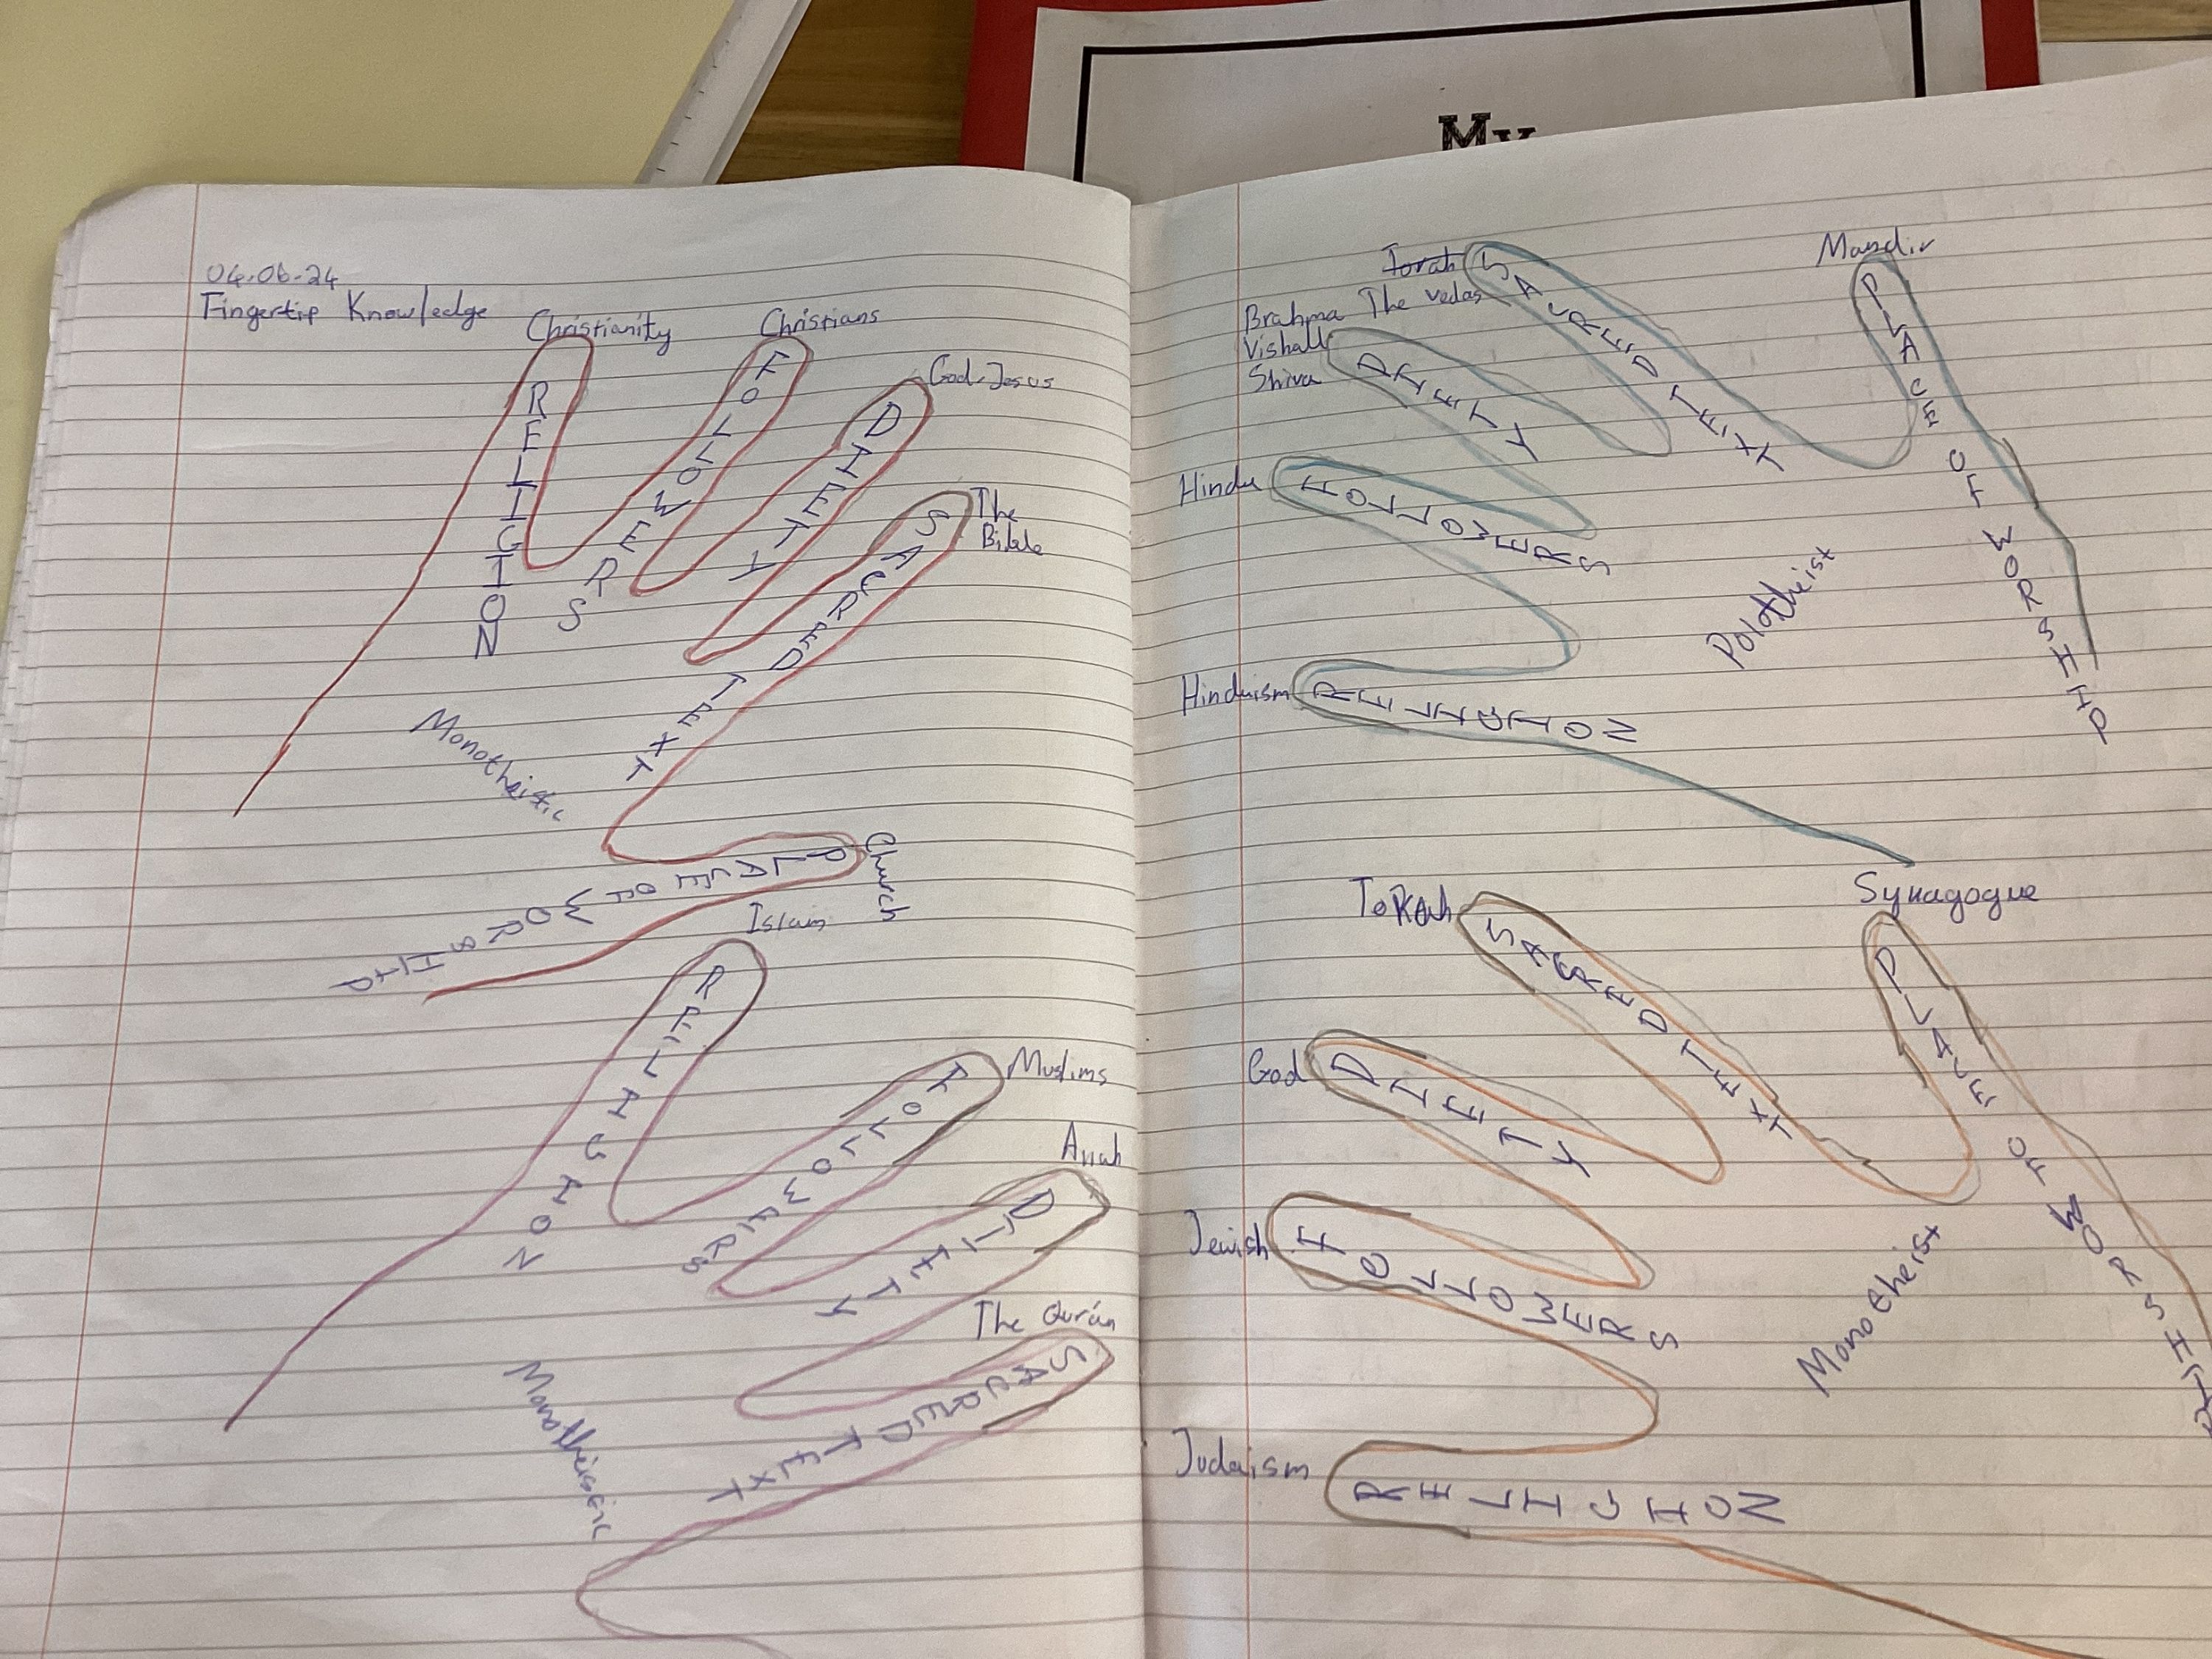 My
04.06.24
Fingertip Knowledge
Christianity
RELIGION
Christians
FOLLOWERS
God-Jesus
DIETY
The
Bible
SACRED TEXT
Church
PLACE OF WORSHIP
Monotheistic
Islam
RELIGION
Muslims
FOLLOWERS
Allah
DIETY
The Qurán
SACRED TEXT
Monotheistic
Torah
The vedas
SACRED TEXT
Mandir
PLACE OF WORSHIP
Brahma
Shiva
DIETY
Hindu
FOLLOWERS
Hinduism
RELIGION
Polotheist
Torah
SACRED TEXT
Synagogue
PLACE OF WORSHIP
God
DIETY
Jewish
FOLLOWERS
Judaism
RELIGION
Monotheist